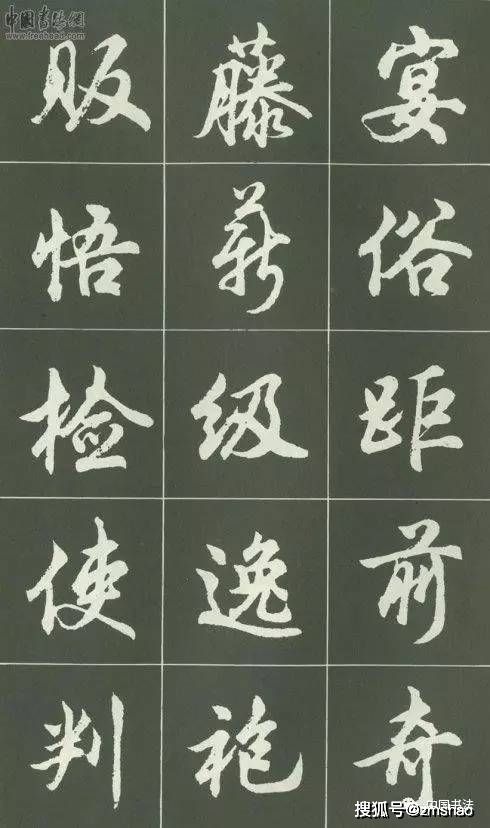 中国书法网
www.freehead.com
宴俗距前奇
藤薪级逸袍
贩悟检使判
中国书法
搜狐号@zmshao